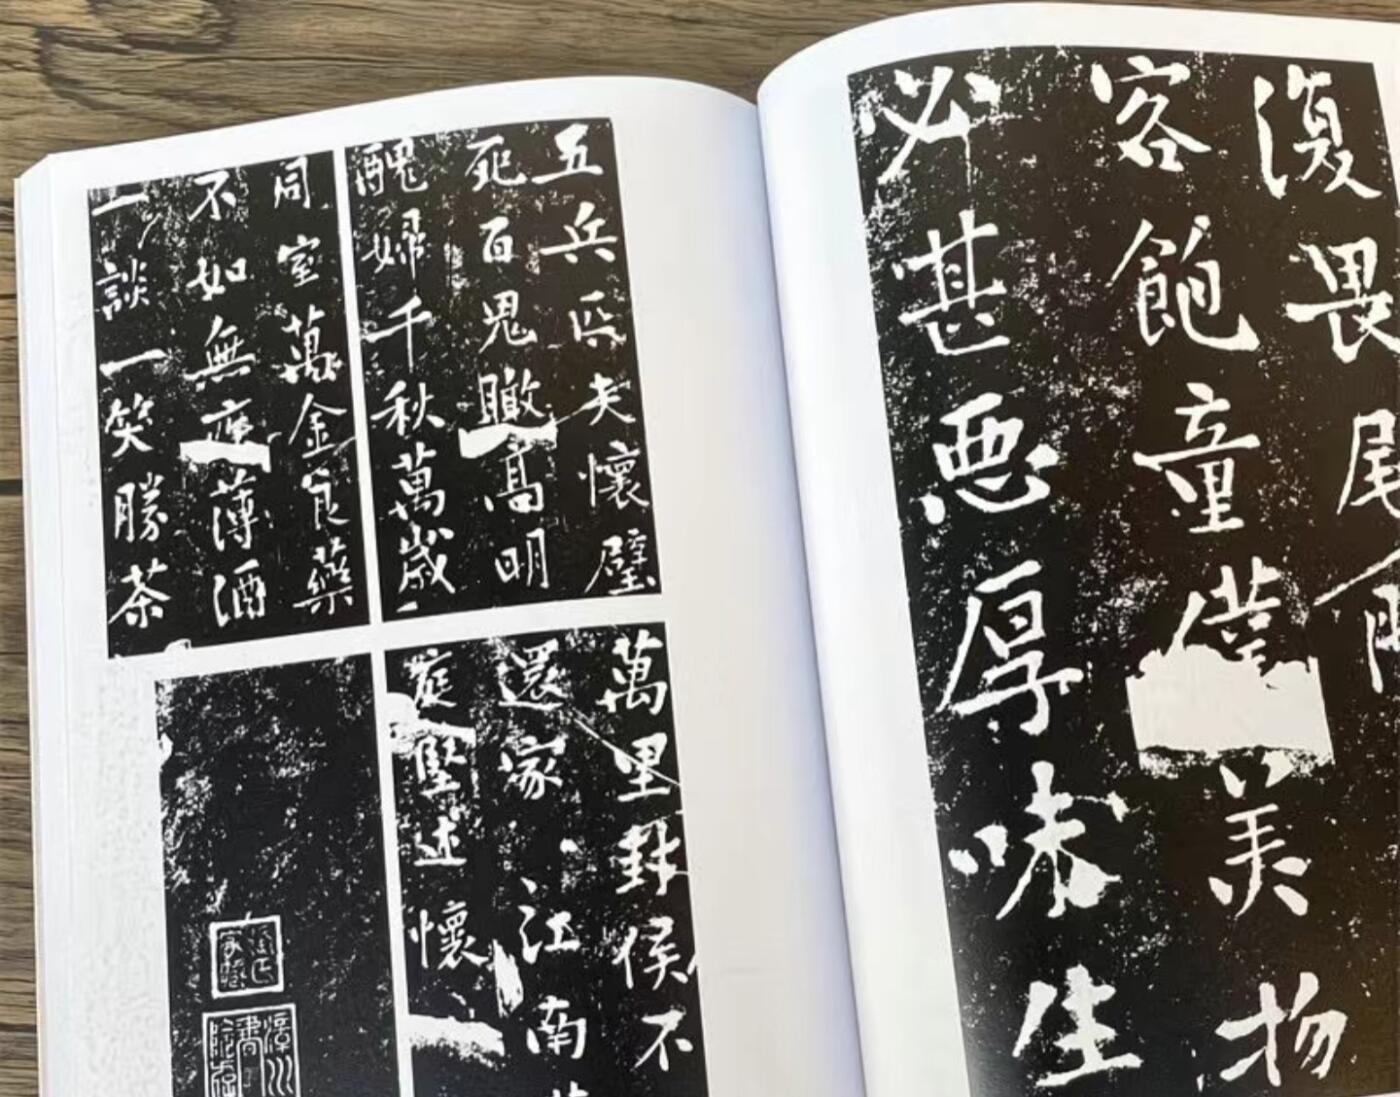 復畏尾門
客飽童僕美物
必甚惡厚味生
五兵匹夫懷璧
死百鬼瞰高明
醜婦千秋萬歲
同室萬金良藥
不如無疾薄酒
一談一笑勝茶
萬里封侯不
還家江南
庭堅述懷